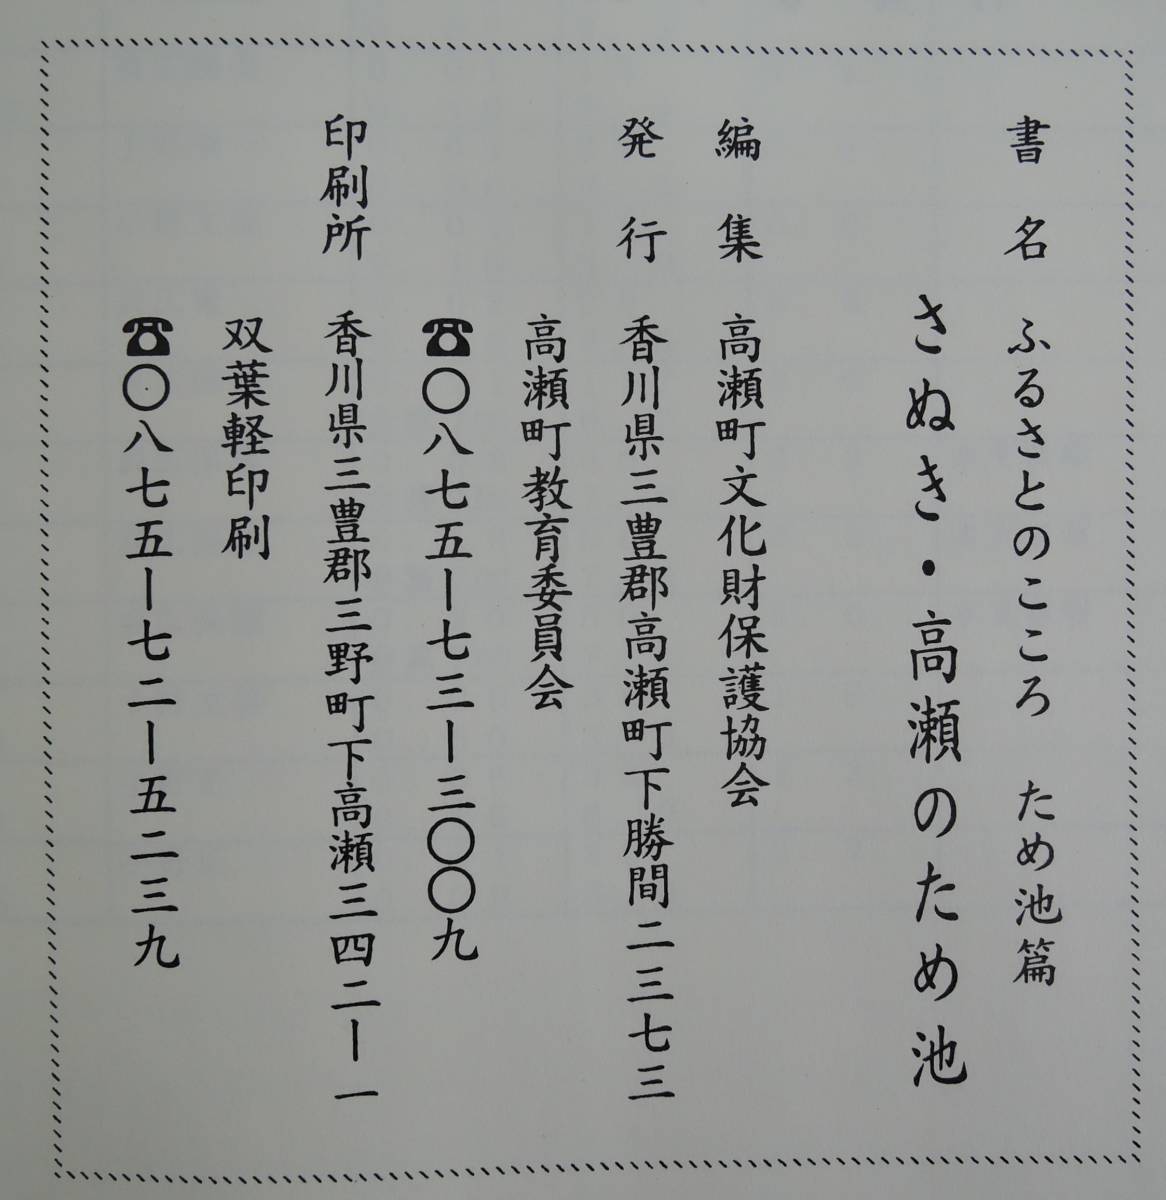 書名 ふるさとのこころ ため池篇
さぬき・高瀬のため池
編集 高瀬町文化財保護協会
発行 香川県三豊郡高瀬町下勝間二三七三
高瀬町教育委員会
☎〇八七五ー七三ー三〇〇九
印刷所 香川県三豊郡三野町下高瀬三四二ー一
双葉軽印刷
☎〇八七五ー七二ー五二三九